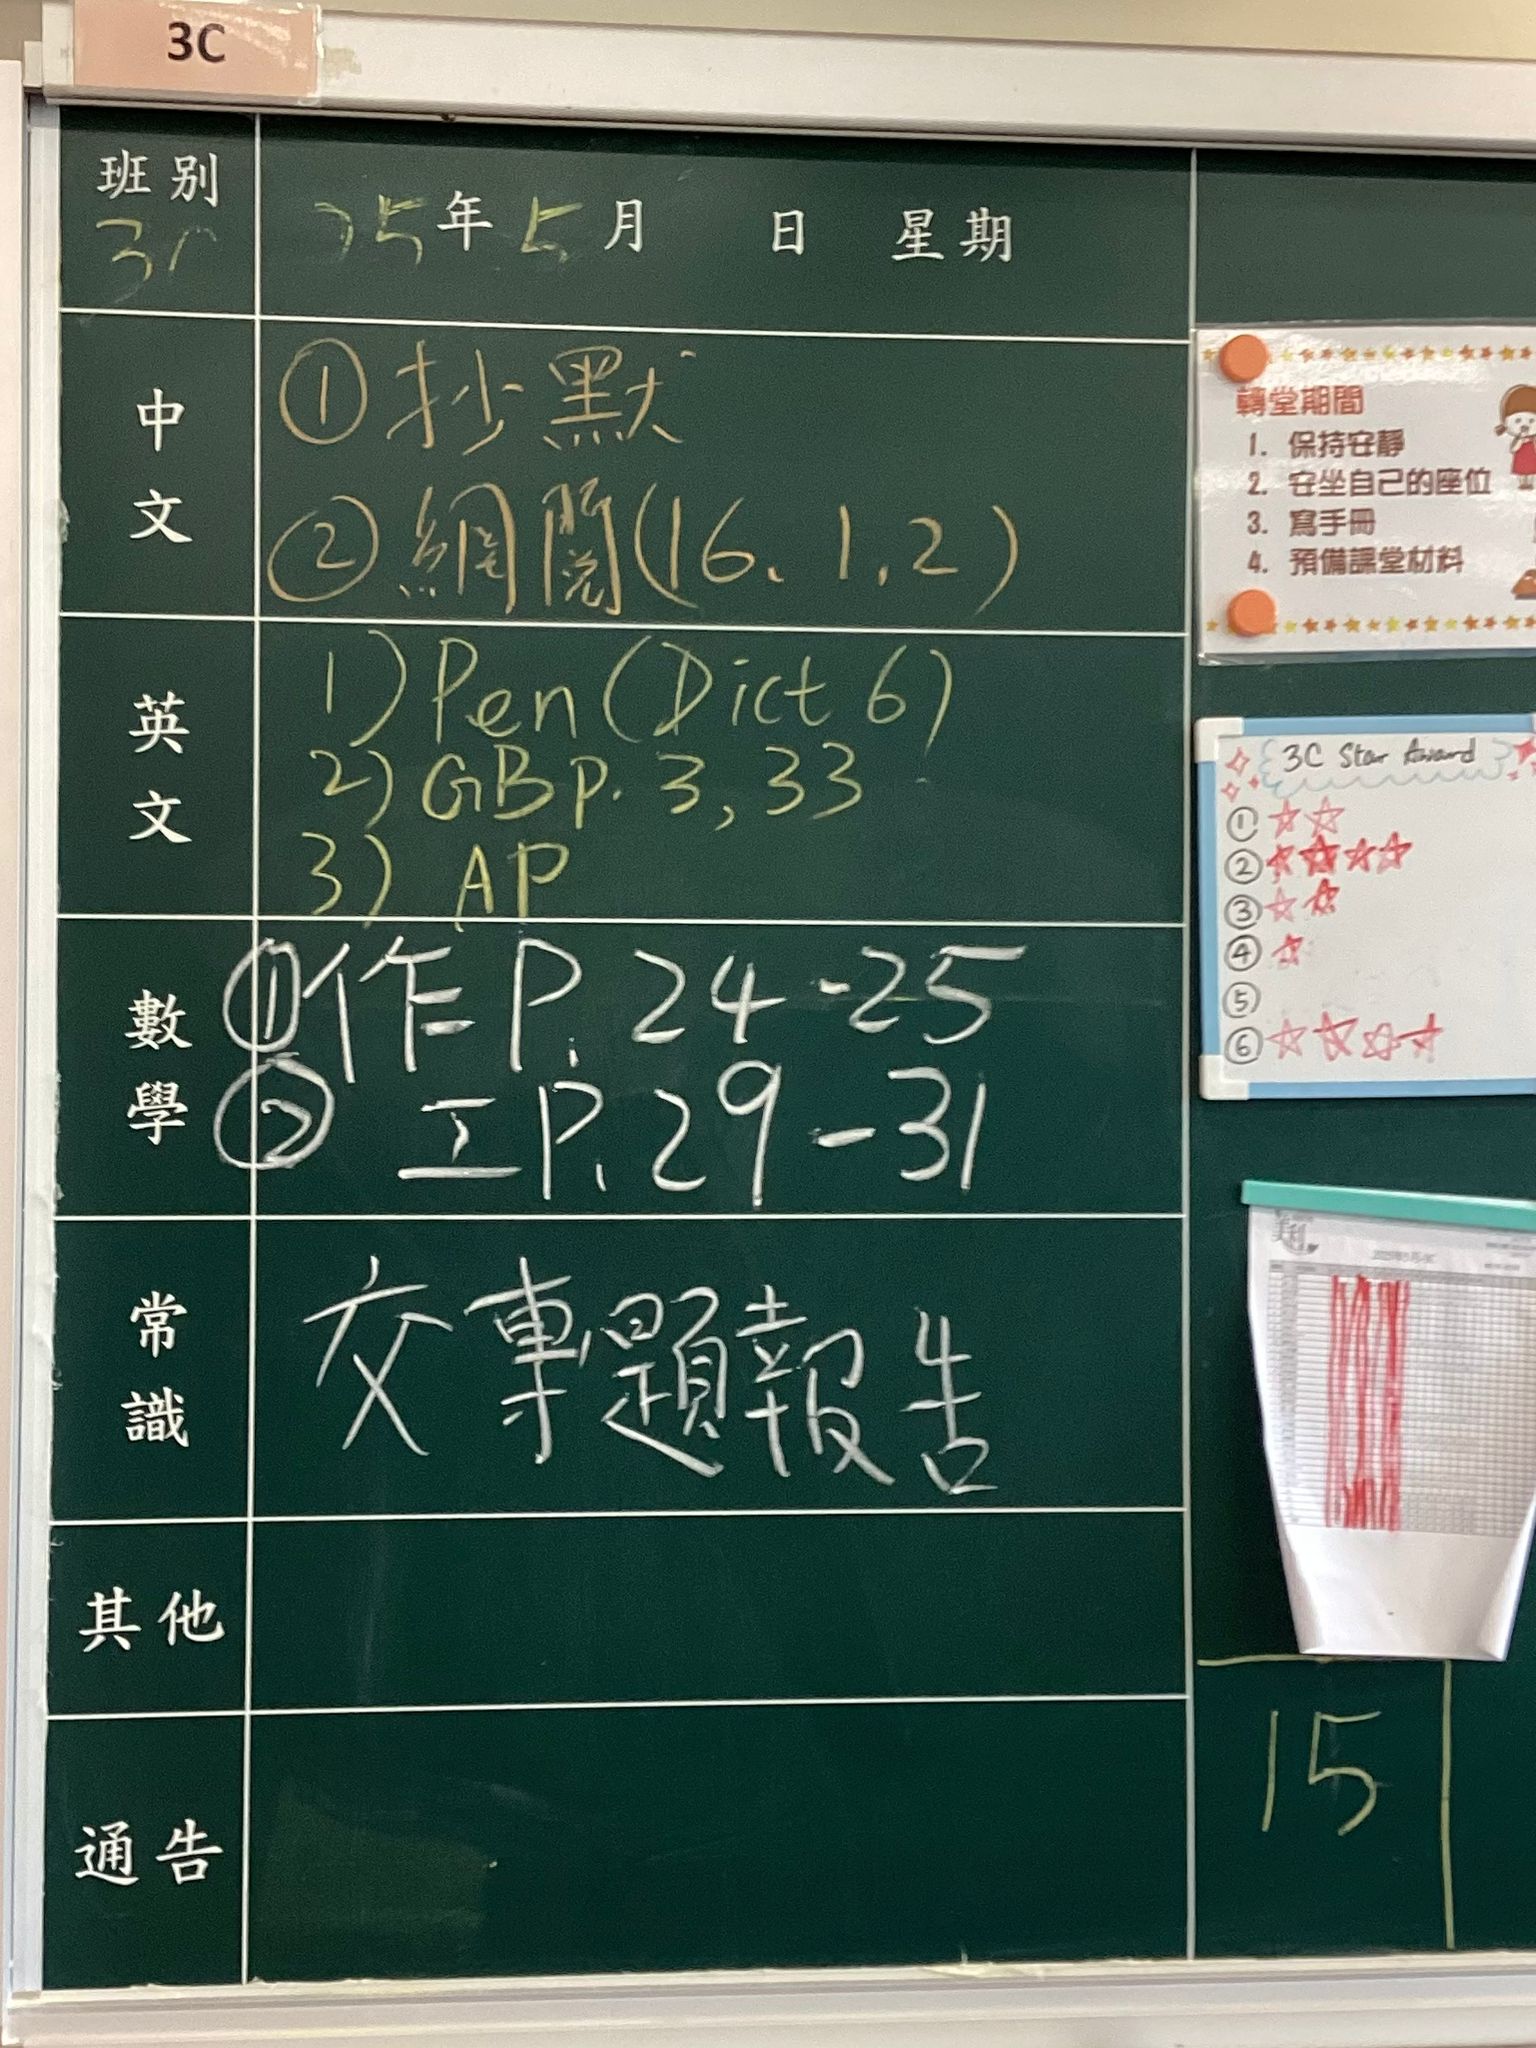 3C
班別
3C
25年5月 日 星期
中文
①抄默
②網閱(16、1,2)
英文
1) Pen (Dict 6)
2) GB p. 3, 33
3) AP
數學
①作P. 24-25
②工P. 29-31
常識
交專題報告
其他
通告
轉堂期間
1. 保持安靜
2. 安坐自己的座位
3. 寫手冊
4. 預備課堂材料
3C Star Award
①
②
③
④
⑤
⑥
15